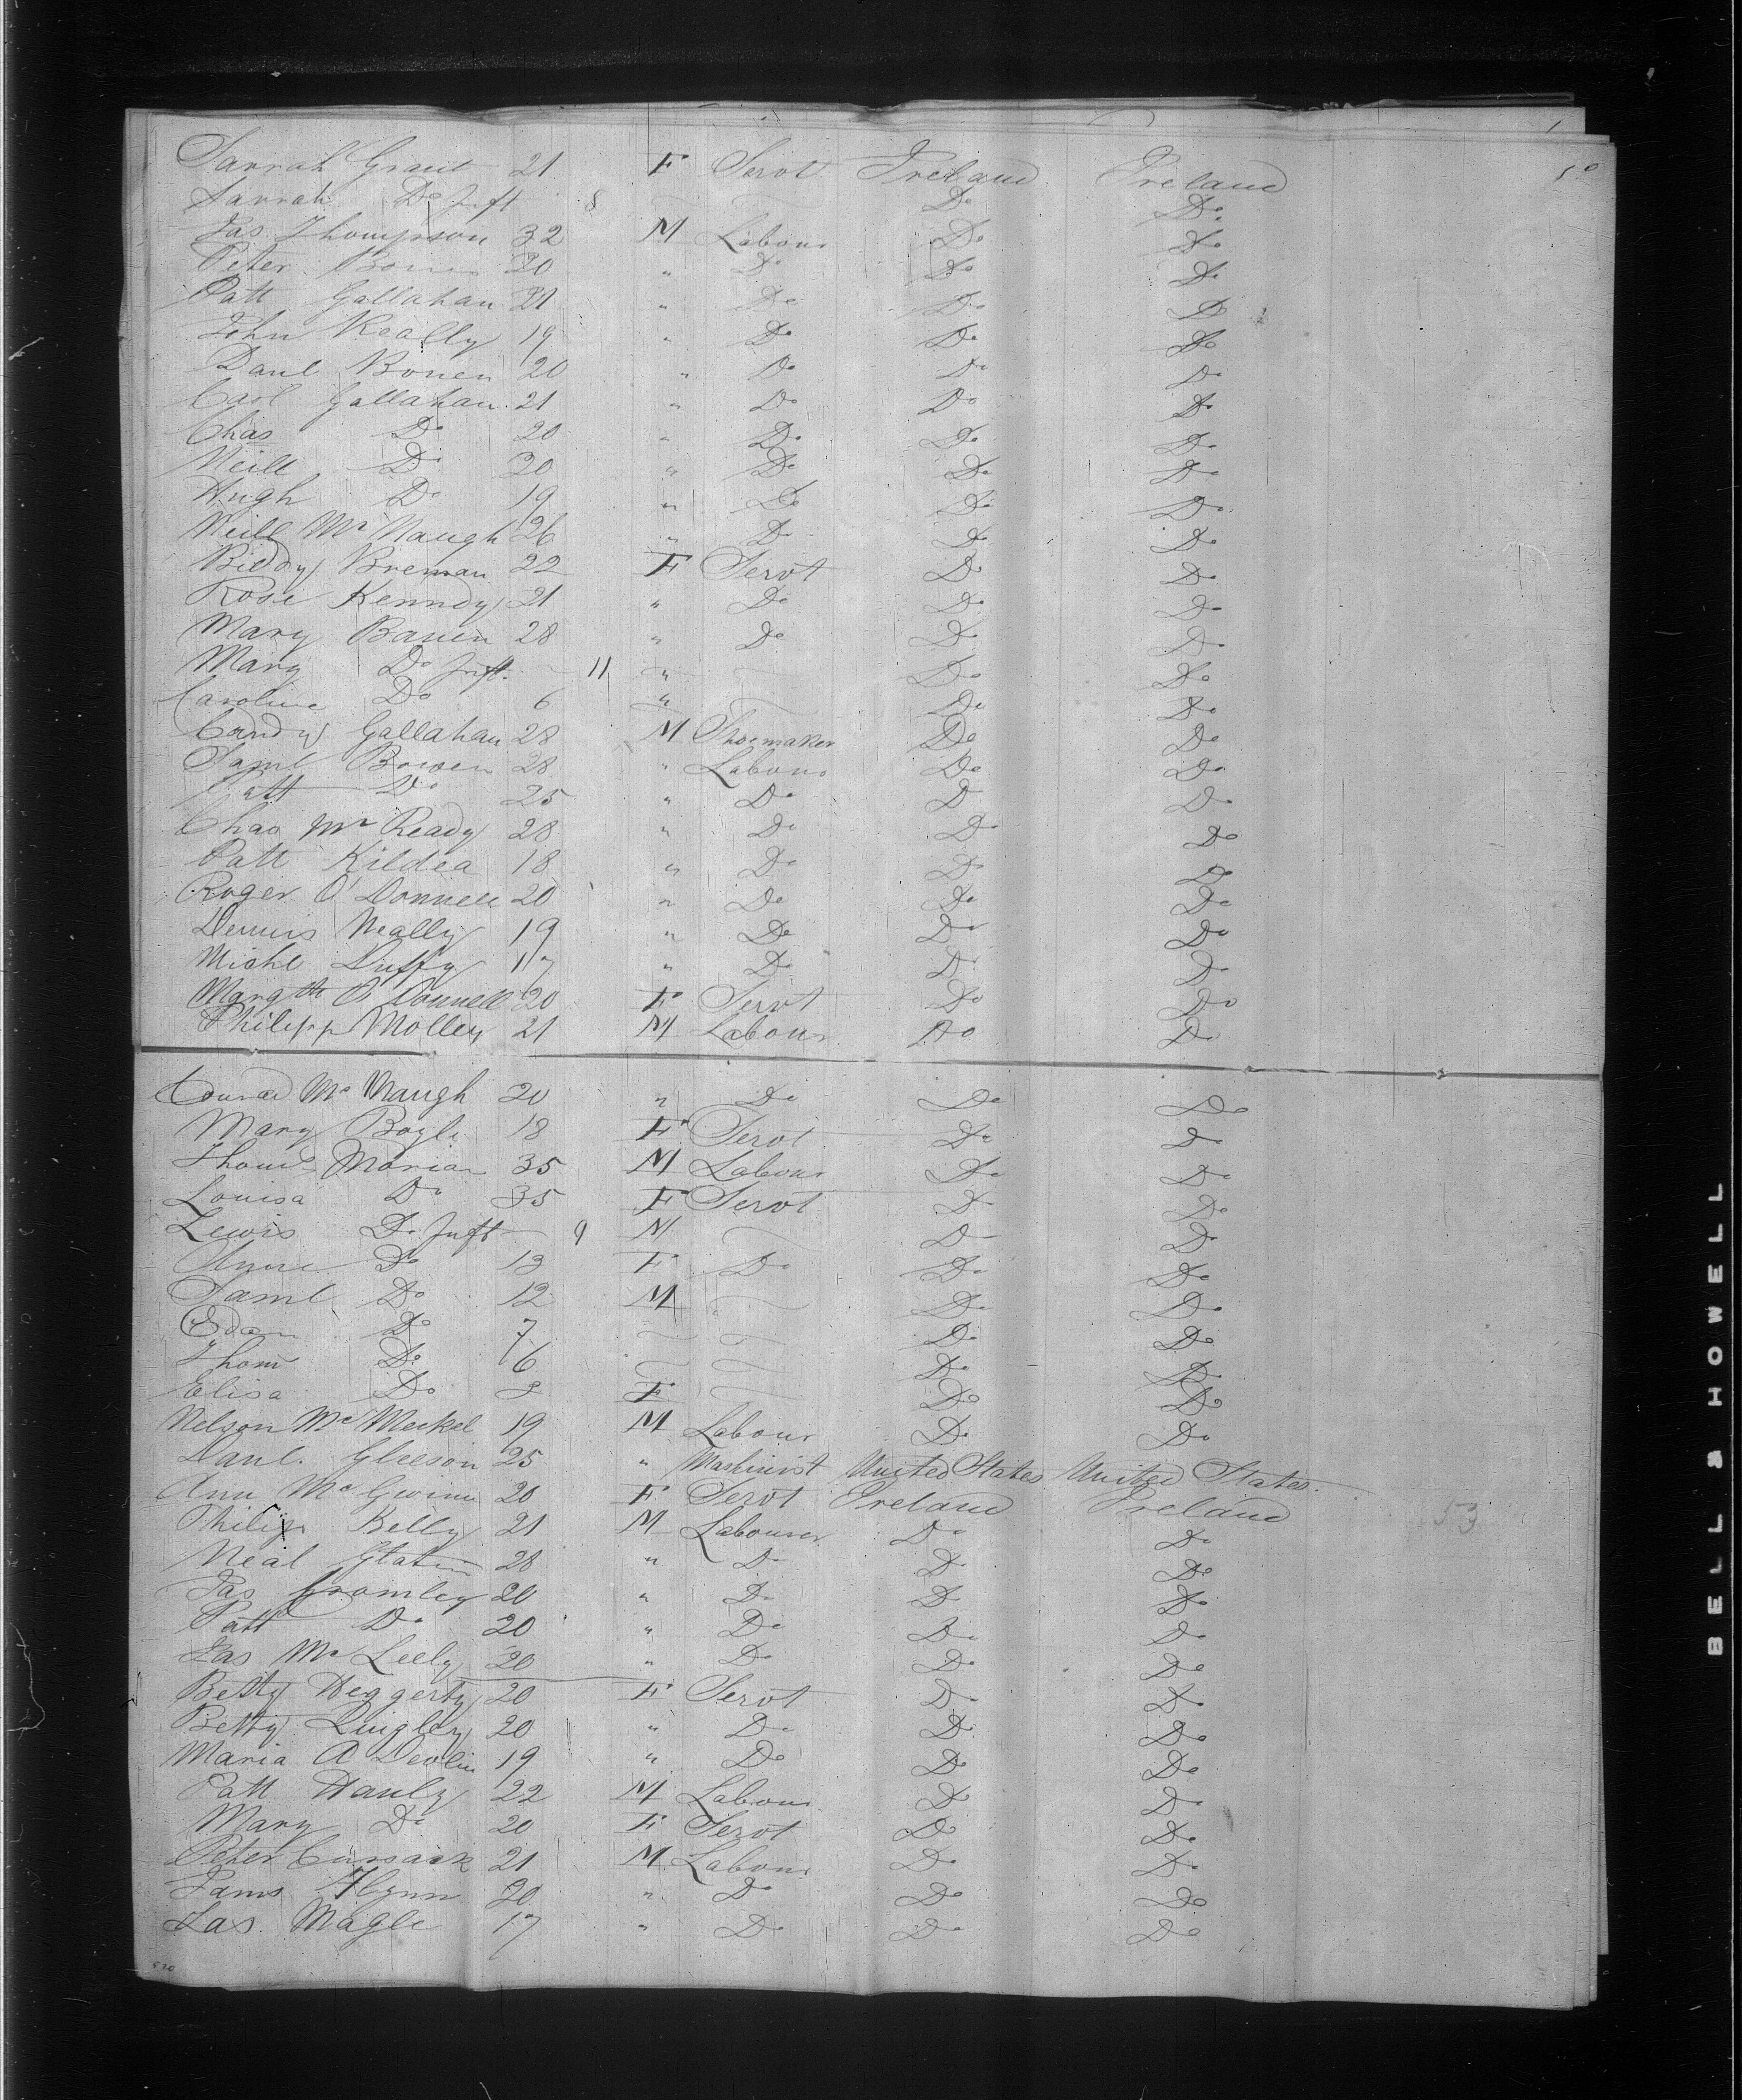 Sarrah Grant 21 F Servt Ireland Ireland
Sarrah Do Inft 8 Do Do
Jas Thompson 32 M Labour Do Do
Peter 20 " Do Do Do
Patt Gallahan 21 " Do Do Do
John Really 19 " Do Do Do
Danl Bonen 20 " Do Do Do
Carl Gallahan 21 " Do Do Do
Chas Do 20 " Do Do Do
Neill Do 20 " Do Do Do
Hugh Do 19 " Do Do Do
Neill Mc Naugh 26 " Do Do Do
Biddy Brennan 22 F Servt Do Do
Rose Kenndy 21 " Do Do Do
Mary Bauen 28 " Do Do Do
Mary Do Inft 11 " Do Do
Caroline Do 6 " Do Do
Condy Gallahan 28 M Shoemaker Do Do
Saml Bowen 28 " Labour Do Do
Patt Do 25 " Do Do Do
Chas Mc Ready 28 " Do Do Do
Patt Kildea 18 " Do Do Do
Roger O'Donnell 20 " Do Do Do
Dennis Neally 19 " Do Do Do
Michl Duffy 17 " Do Do Do
Margth O Donnell 20 F Servt Do Do
Philipp Molley 21 M Labour Do Do
Mc Naugh 20 " Do Do Do
Mary Boyle 18 F Servt Do Do
Thoms Morian 35 M Labour Do Do
Louisa Do 35 F Servt Do Do
Lewis Do Inft 9 M Do Do
Anne Do 13 F Do Do Do
Saml Do 12 M Do Do
Do 7 Do Do
Thom Do 6 Do Do
Elisa Do F Do Do
Nelson Mc Meekel 19 M Labour Do Do
Danl. Gleeson 25 " Mashinist United States United States
Ann Mc Gwinn 20 F Servt Ireland Ireland
Philip Kelly 21 M Labourer Do Do
Neal 28 " Do Do Do
Jas Gromley 20 " Do Do Do
Patt Do 20 " Do Do Do
Jas Mc Leely 20 " Do Do Do
Betty Heggerty 20 F Servt Do Do
Betty Quigley 20 " Do Do Do
Maria A Devlin 19 " Do Do Do
Patt Hauly 22 M Labour Do Do
Mary Do 20 F Servt Do Do
Peter Cussack 21 M Labour Do Do
Jams Flynn 20 " Do Do Do
Jas. Magle 17 " Do Do Do
53
BELL & HOWELL